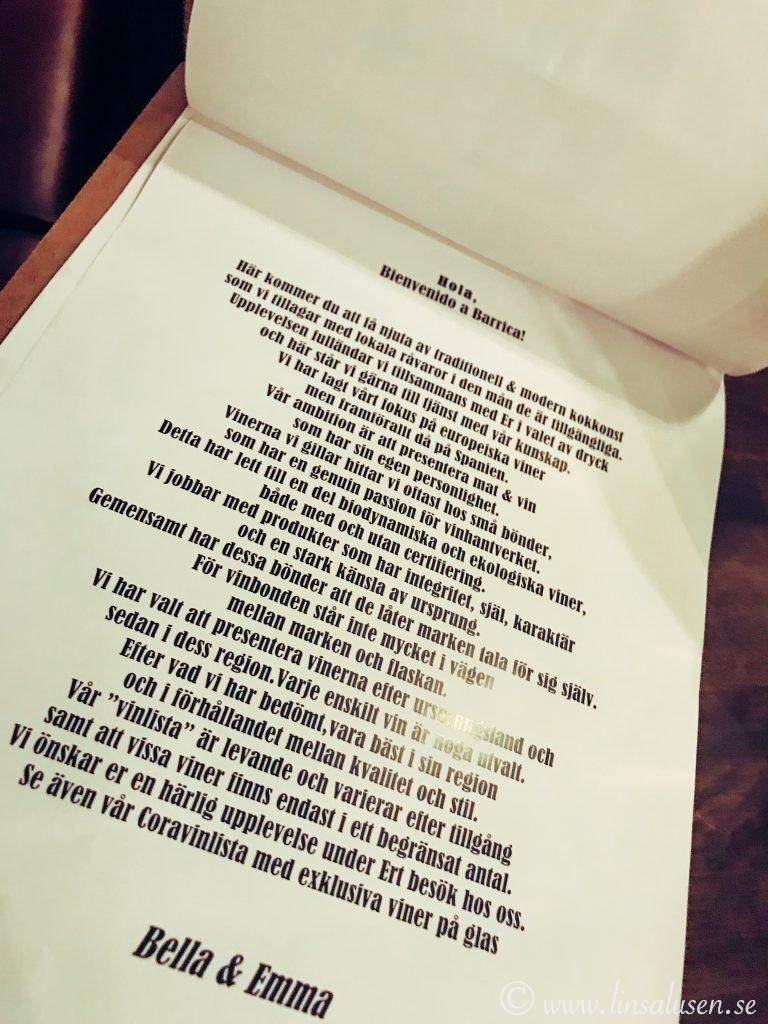 Hola,
Bienvenido a Barrica!
Här kommer du att få njuta av traditionell & modern kokkonst
som vi tillagar med lokala råvaror i den mån de är tillgängliga.
Upplevelsen fulländar vi tillsammans med Er i valet av dryck
och här står vi gärna till tjänst med vår kunskap.
Vi har lagt vårt fokus på europeiska viner
men framförallt då på Spanien.
Vår ambition är att presentera mat & vin
som har sin egen personlighet.
Vinerna vi gillar hittar vi oftast hos små bönder,
som har en genuin passion för vinhantverket.
Detta har lett till en del biodynamiska och ekologiska viner,
både med och utan certifiering.
Vi jobbar med produkter som har integritet, själ, karaktär
och en stark känsla av ursprung.
Gemensamt har dessa bönder att de låter marken tala för sig själv.
För vinbonden står inte mycket i vägen
mellan marken och flaskan.
Vi har valt att presentera vinerna efter ursprungsland och
sedan i dess region.Varje enskilt vin är noga utvalt.
Efter vad vi har bedömt,vara bäst i sin region
och i förhållandet mellan kvalitet och stil.
Vår ”vinlista” är levande och varierar efter tillgång
samt att vissa viner finns endast i ett begränsat antal.
Vi önskar er en härlig upplevelse under Ert besök hos oss.
Se även vår Coravinlista med exklusiva viner på glas
Bella & Emma
© www.linsalusen.se